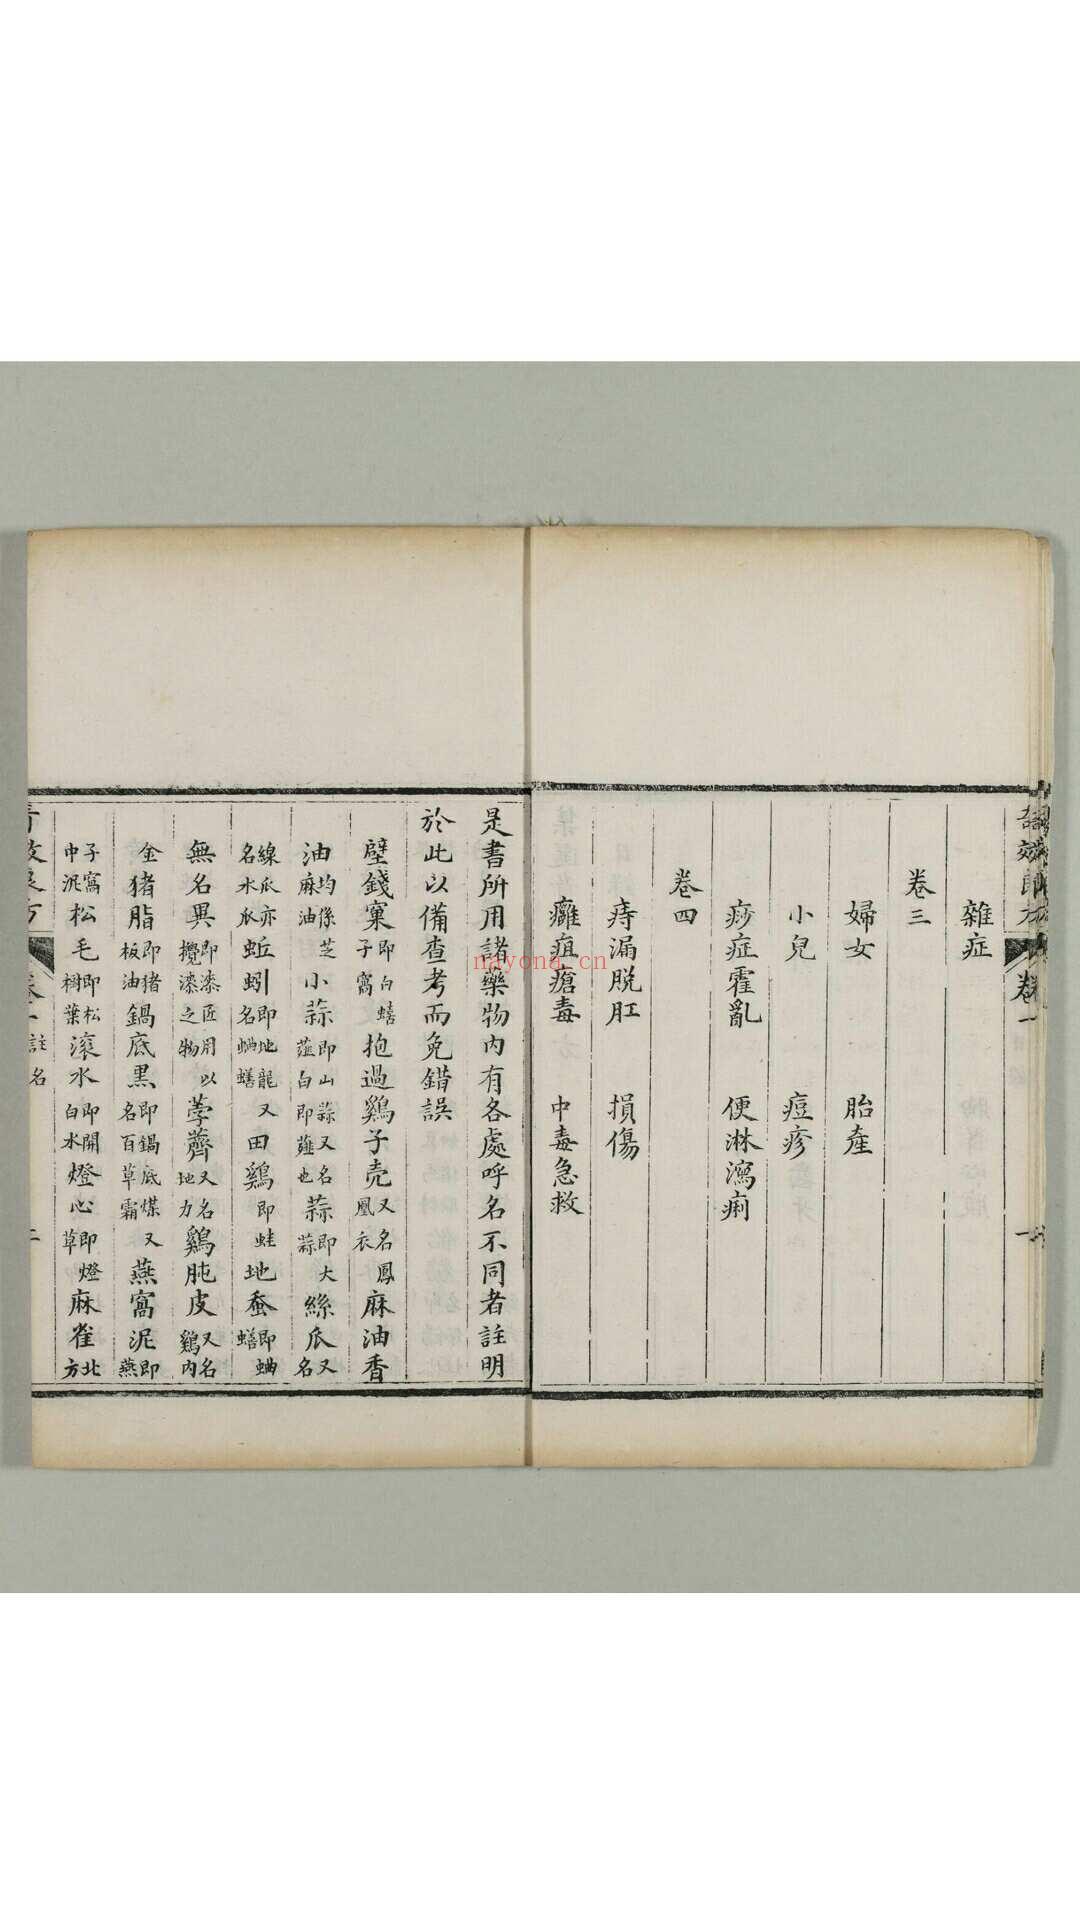 雜症
卷三
婦女 胎產
小兒 痘疹
痧症霍亂 便淋瀉痢
卷四
痔漏脱肛 損傷
癰疽瘡毒 中毒急救
是書所用諸藥物内有各處呼名不同者註明
於此以備查考而免錯誤
壁錢窠即白蟢子窩 抱過鷄子壳又名鳳凰衣 麻油香
油均係芝麻油 小蒜即山蒜又名薤白即薤也 蒜即大蒜 絲瓜又名
線瓜亦名水瓜 蚯蚓即地龍又名𧌒蟮 田鷄即蛙 地蚕即𧌒蟮
無名異即漆匠用以攪漆之物 荸薺又名地力 鷄肫皮又名鷄内
金 猪脂即猪板油 鍋底黑即鍋底煤又名百草霜 燕窩泥即燕
子窩中泥 松毛即松樹葉 滚水即開白水 燈心即燈草 麻雀北方
卷一 註名 二
nayona.cn